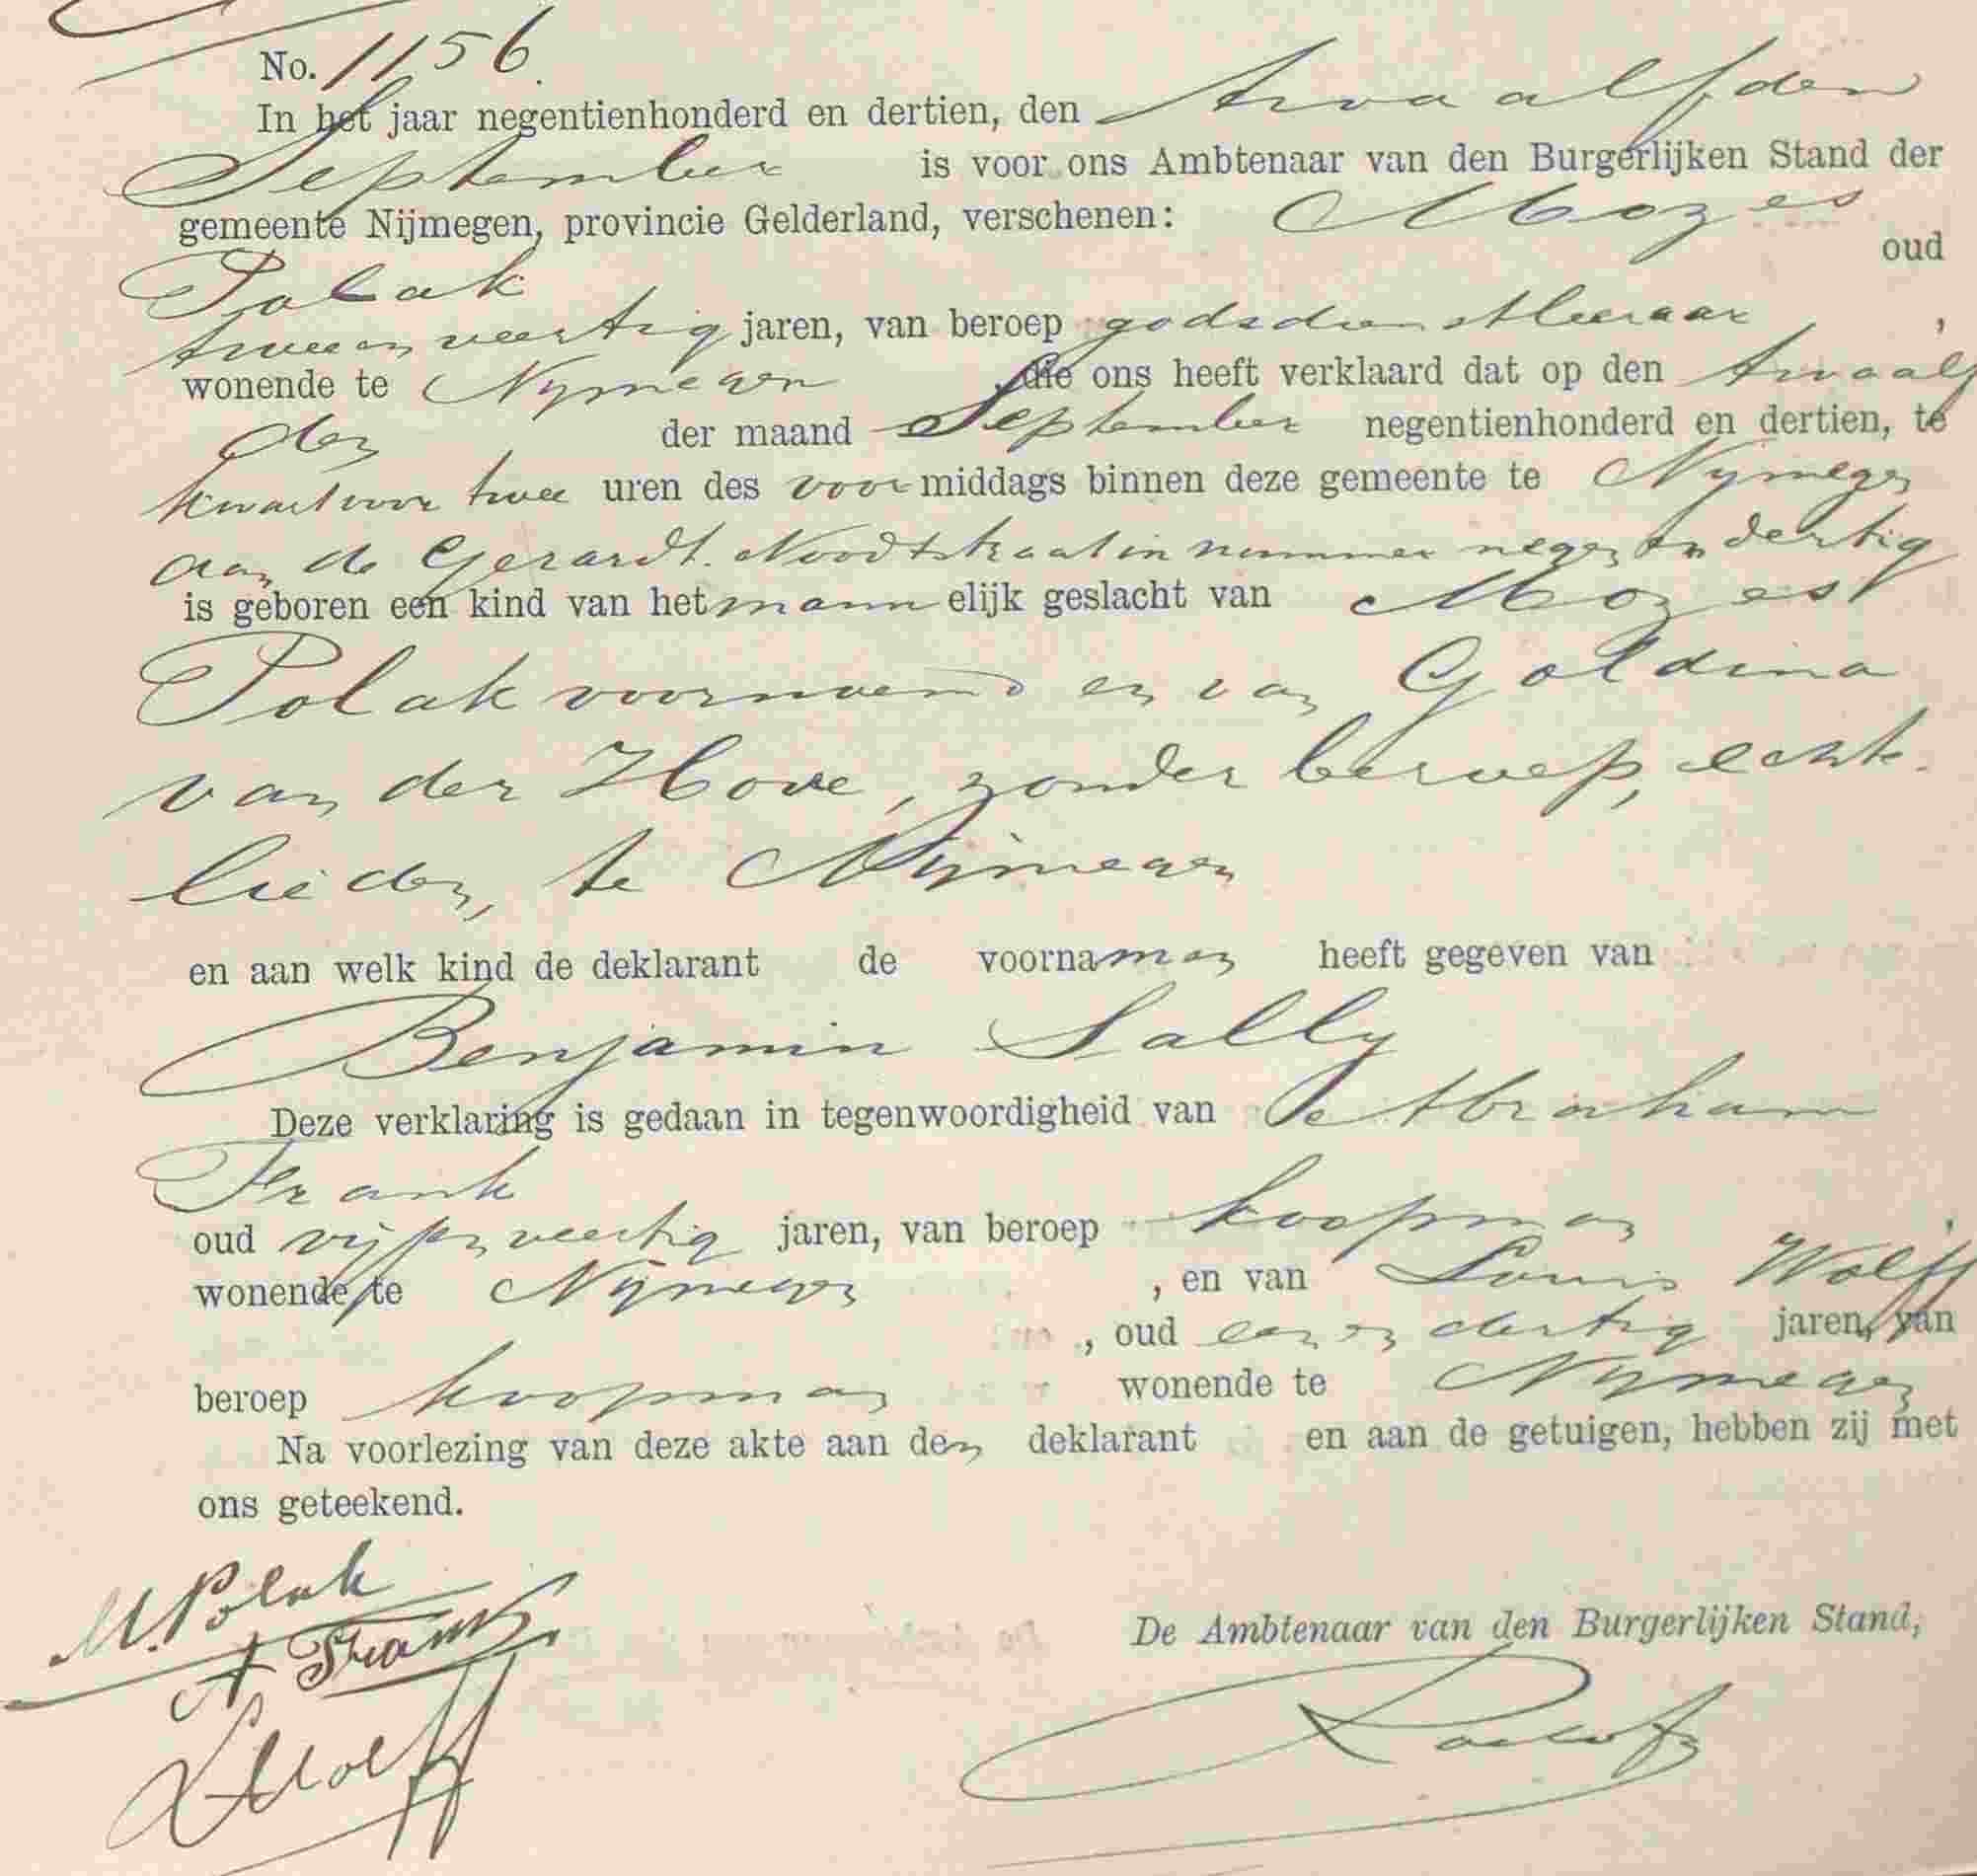 No. 1156.
In het jaar negentienhonderd en dertien, den twaalfden
September is voor ons Ambtenaar van den Burgerlijken Stand der
gemeente Nijmegen, provincie Gelderland, verschenen: Mozes
Polak oud
tweeenveertig jaren, van beroep godsdienstleeraar ,
wonende te Nijmegen die ons heeft verklaard dat op den twaalf
den der maand September negentienhonderd en dertien, te
kwart voor twee uren des voormiddags binnen deze gemeente te Nijmegen
aan de Gerardt. Noodtstraat in nummer negen en dertig
is geboren een kind van het mannelijk geslacht van Mozes
Polak voornoemd en van Goldina
van der Hove, zonder beroep, echte-
lieden, te Nijmegen
en aan welk kind de deklarant de voornamen heeft gegeven van
Benjamin Sally
Deze verklaring is gedaan in tegenwoordigheid van Abraham
Frank
oud vijfenveertig jaren, van beroep koopman ,
wonende te Nijmegen , en van Louis Wolff
, oud eenendertig jaren, van
beroep koopman wonende te Nijmegen
Na voorlezing van deze akte aan den deklarant en aan de getuigen, hebben zij met
ons geteekend.
M. Polak
A Frank
De Ambtenaar van den Burgerlijken Stand,
L Wolff